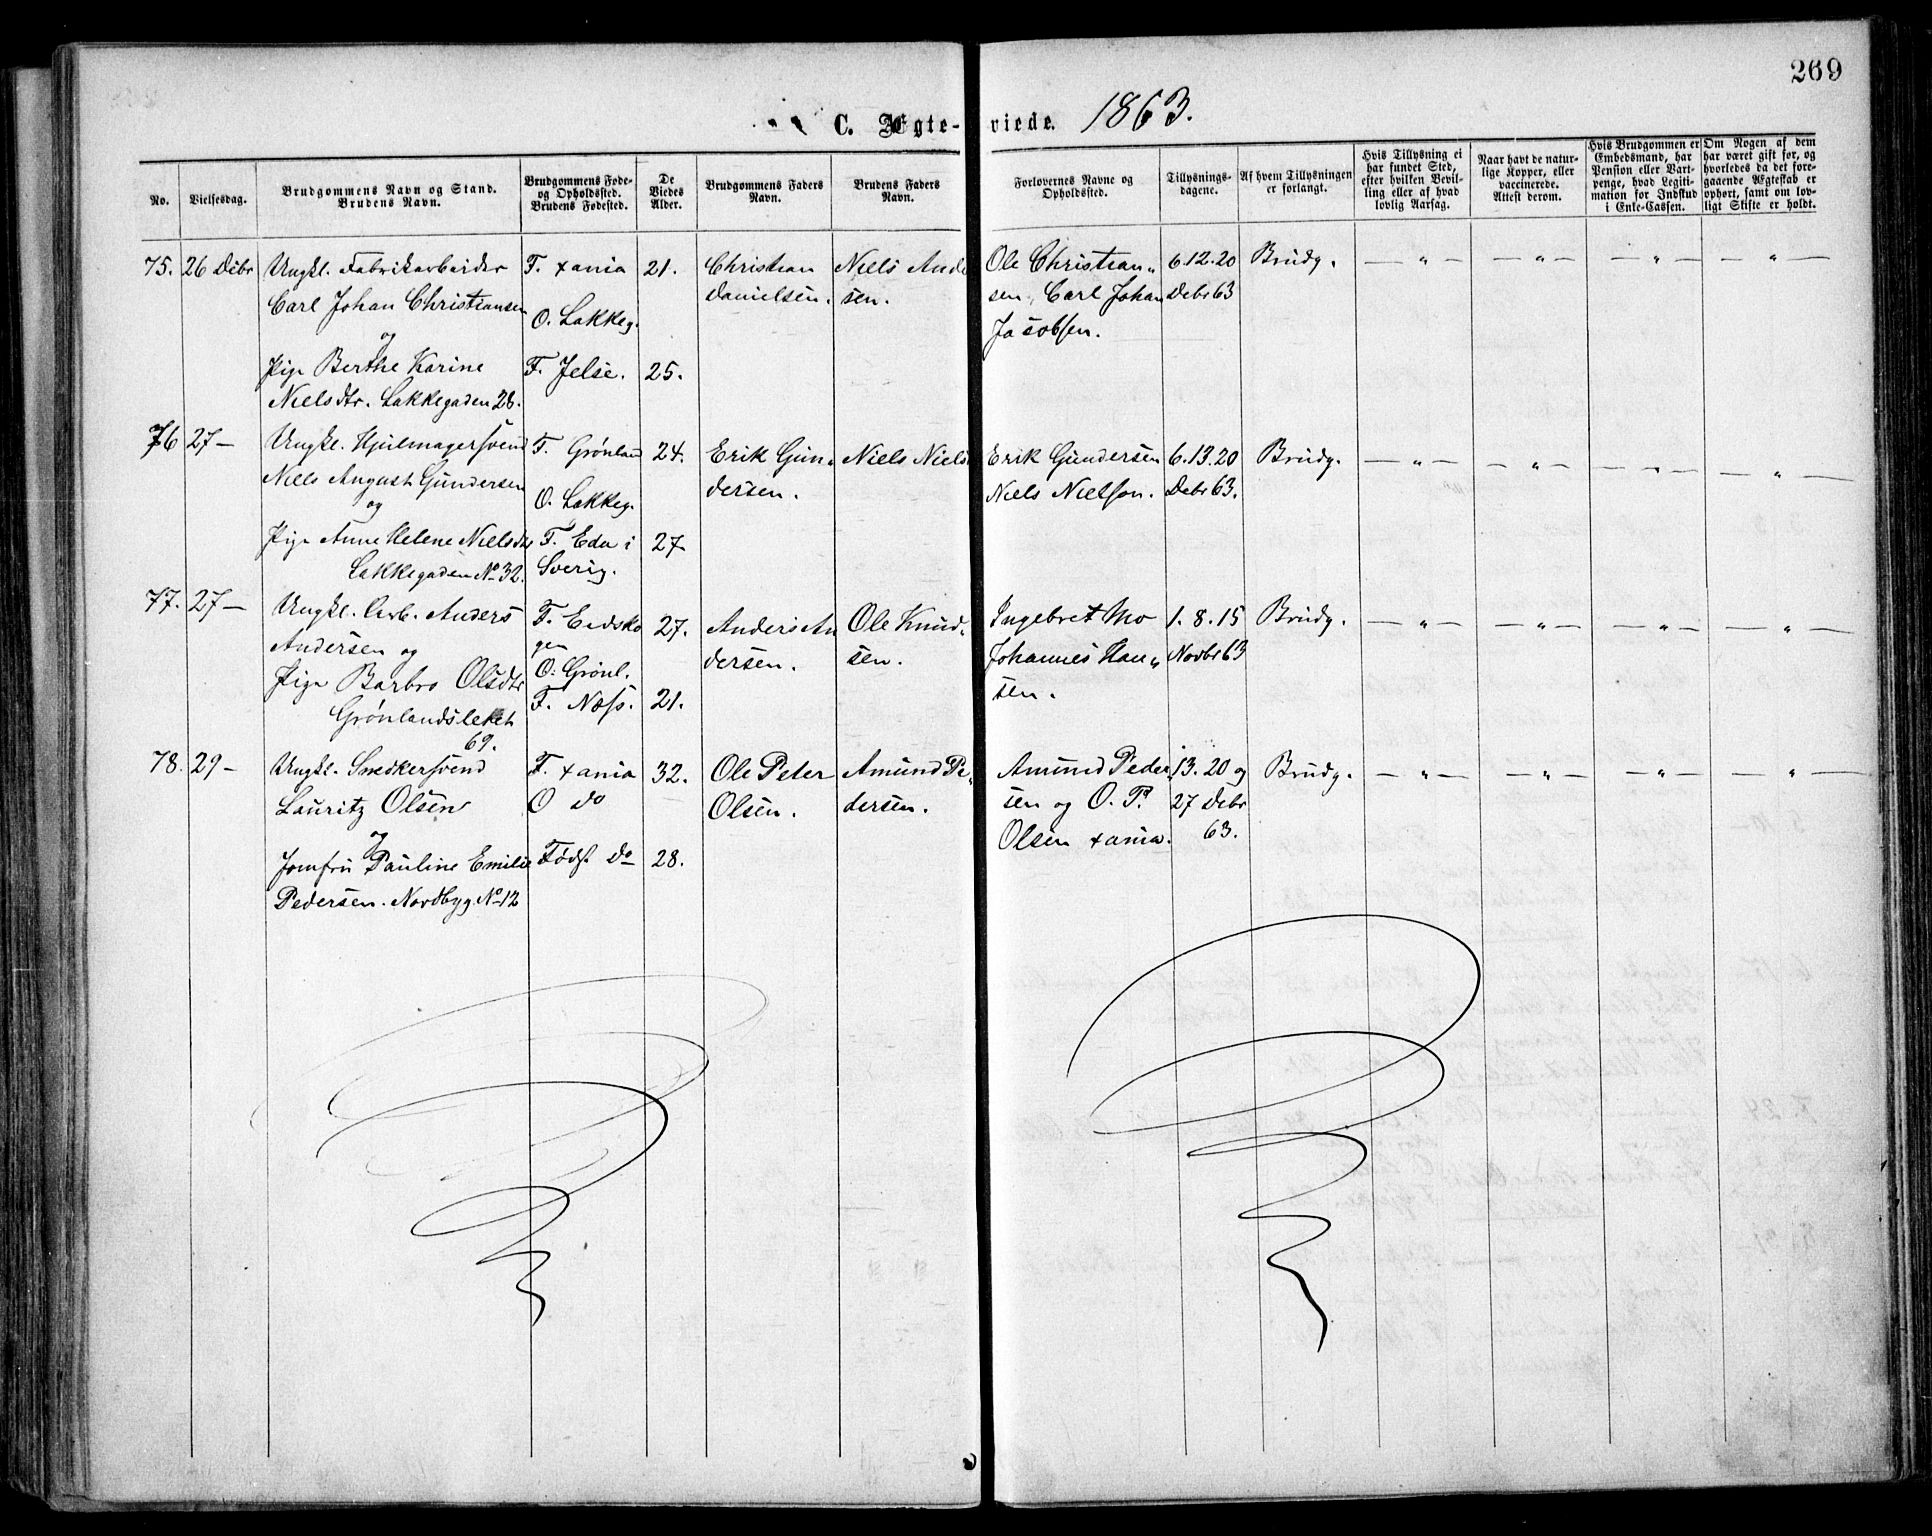 269
C. Ægte-viede. 1863.
No.
Vielsesdag.
Brudgommens Navn og Stand.
Brudens Navn.
Brudgommens Føde-
og Opholdssted.
Brudens Fødested.
De
Viedes
Alder.
Brudgommens Faders
Navn.
Brudens Faders
Navn.
Forlovernes Navne og
Opholdssted.
Tillysnings-
dagene.
Af hvem Tillysningen
er forlangt.
Hvis Tillysning ei
har fundet Sted,
efter hvilken Bevil-
ling eller af hvad
lovlig Aarsag.
Naar havt de natur-
lige Kopper, eller
vaccinerede.
Attest derom.
Hvis Brudgommen er
Embedsmand, har
Pension eller Vart-
penge, hvad Legiti-
mation for Indskud
i Enke-Cassen.
Om Nogen af dem
har været gift før, og
hvorledes da det fore-
gaaende Ægteskab er
ophørt, samt om lov-
ligt Skifte er holdt.
75. 26 Debr Ungkl. Fabrikarbeider F. Xania 21. Christian Niels Ande Ole Christian„ 6.12.20 Brudg. — „ — — „ — — „ — — „ —
Carl Johan Christiansen O. Lakkeg. Danielsen. sen. sen, Carl Johan Debr 63
og Jacobsen.
Pige Berthe Karine F. Jelse. 25.
Nielsdtr. Lakkegaden 28.
76 27 — Ungkl. Hjulmagersvend F. Grønland 24. Erik Gun„ Niels Niels Erik Gundersen 6.13.20 Brudg. — „ — — „ — — „ — — „ —
Niels August Gundersen O. Lakkeg. dersen. Niels Nielsen. Debr 63.
og
Pige Anne Helene Nielsdtr F. Eda i 27
Lakkegaden No 32. Sverig.
77. 27 — Ungkl. Arb. Anders F. Eidsko 27. Anders An Ole Knud„ Ingebret Mo 1.8.15 Brudg. — „ — — „ — — „ — — „ —
Andersen og gen dersen. sen. Johannes Han„ Novbr 63
Pige Barbro Olsdtr O. Grønl. sen.
Grønlandsleret F. Næss. 21.
69.
78. 29 — Ungkl. Snedkersvend F. Xania 32. Ole Peter Amund Pe„ Amund Peder„ 13.20 og Brudg. — „ — — „ — — „ — — „ —
Lauritz Olsen O do Olsen. dersen. sen og O. P. 27 Debr
og Olsen Xania. 63.
Jomfru Pauline Emilie Født do 28.
Pedersen. Nordbyg. No 12